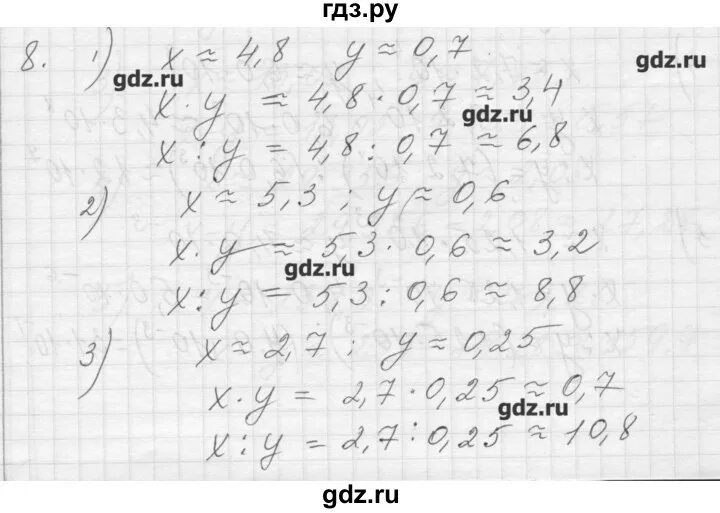 гдз.ру
8. 1) x ≈ 4,8 y ≈ 0,7
gdz.ru gdz.ru
x · y = 4,8 · 0,7 ≈ 3,4
gdz.ru
x : y = 4,8 : 0,7 ≈ 6,8
2) x ≈ 5,3 ; y ≈ 0,6
x · y ≈ 5,3 · 0,6 ≈ 3,2
gdz.ru
x : y = 5,3 : 0,6 ≈ 8,8
3) x ≈ 2,7 ; y ≈ 0,25
x · y = 2,7 · 0,25 ≈ 0,7
gdz.ru
x : y = 2,7 : 0,25 ≈ 10,8
gdz.ru